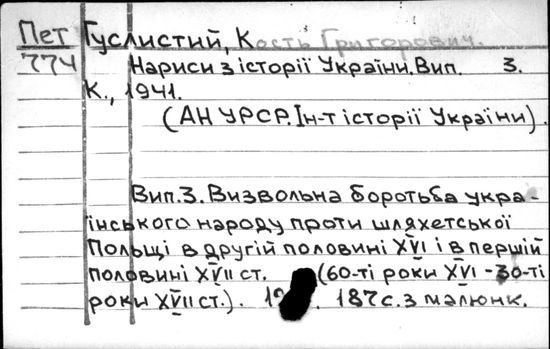 Пет Гуслистий, Кость Григорович.
774 Нариси з історії України. Вип. 3.
К., 1941.
(АН УРСР. Ін-т історії України).
Вип. 3. Визвольна боротьба укра-
їнського народу проти шляхетської
Польщі в другій половині XVI і в першій
половині XVII ст. (60-ті роки XVI - 30-ті
роки XVII ст.). 187 с. з малюнк.